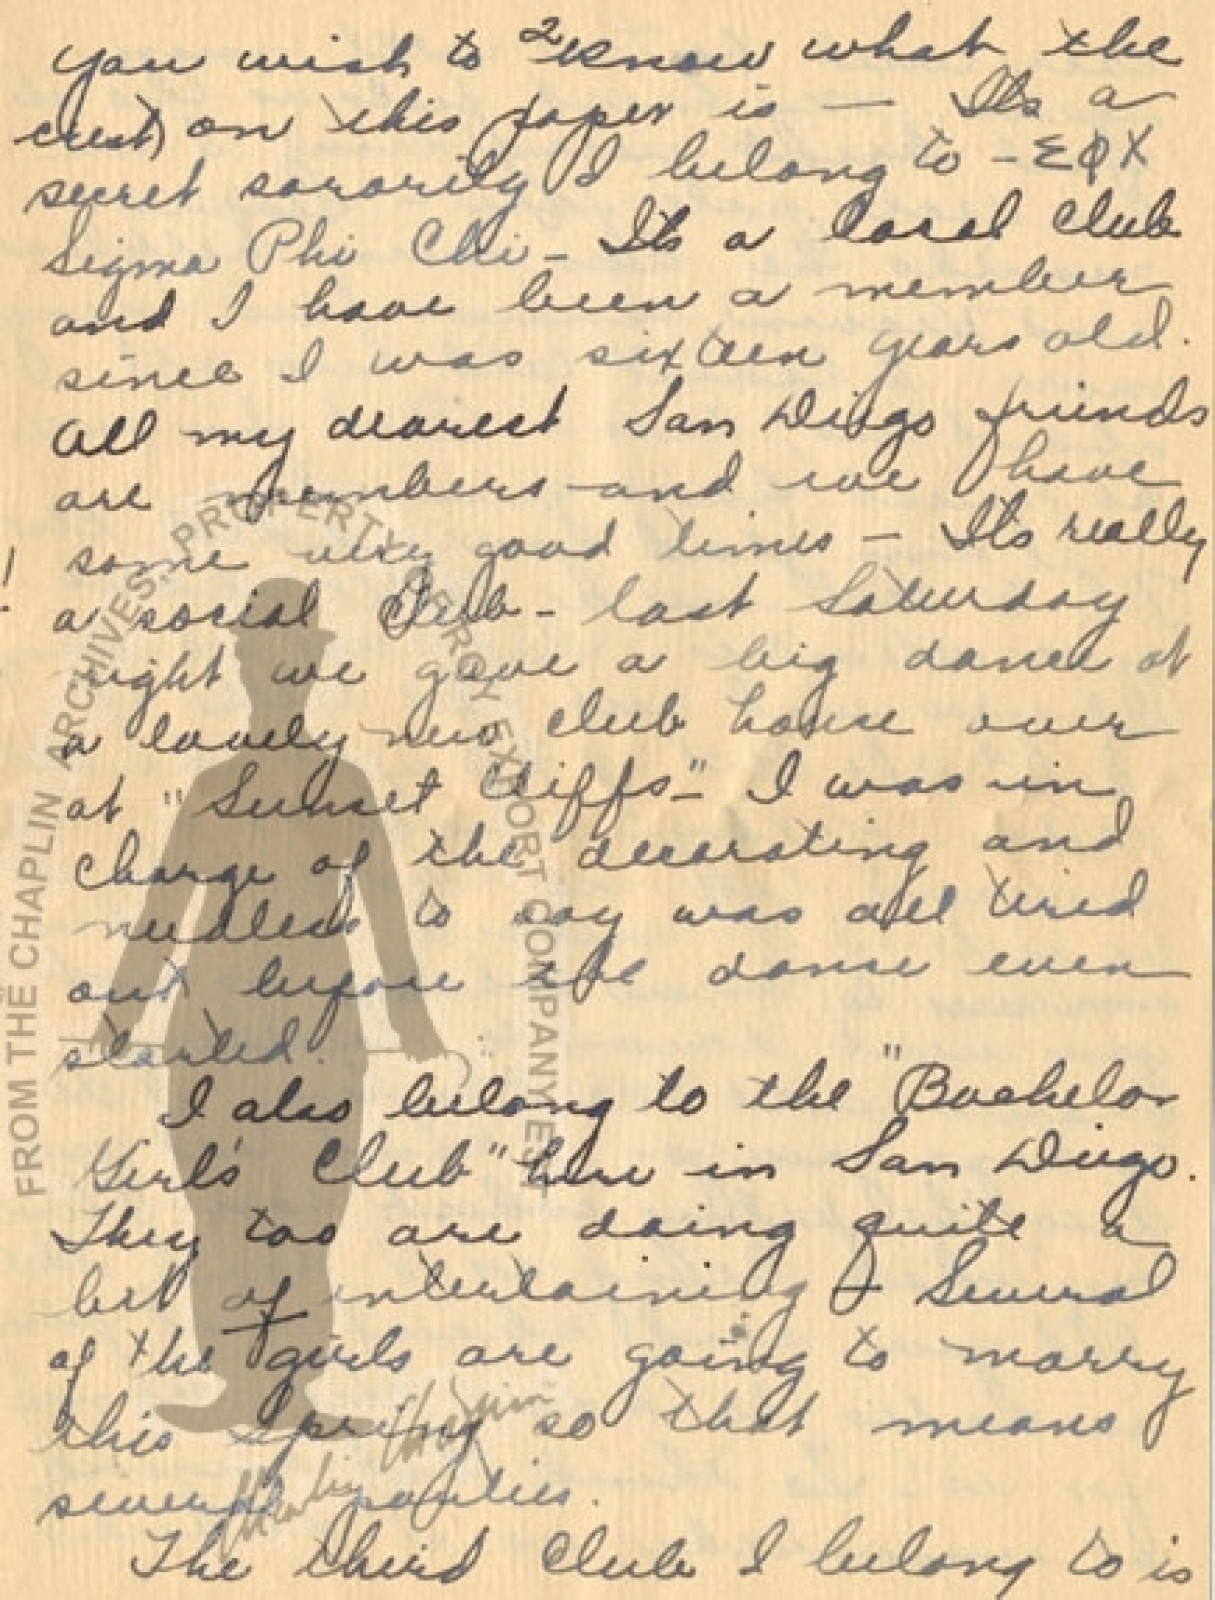 2
you wish to know what the
crest on this paper is — Its a
secret sorority I belong to - ΣΦΧ
Sigma Phi Chi - Its a local Club
and I have been a member
since I was sixteen years old.
All my dearest San Diego friends
are members and we have
some very good times — Its really
a social Club - last Saturday
night we gave a big dance at
a lovely new club house over
at "Sunset Cliffs-" I was in
charge of the decorating and
needless to say was all tired
out before the dance even
started.
I also belong to the "Bachelor
Girl's Club" here in San Diego.
They too are doing quite a
bit of entertaining & Several
of the girls are going to marry
this spring so that means
several parties.
The third Club I belong to is
FROM THE CHAPLIN ARCHIVES. PROPERTY OF ROY EXPORT COMPANY EST
Charlie Chaplin